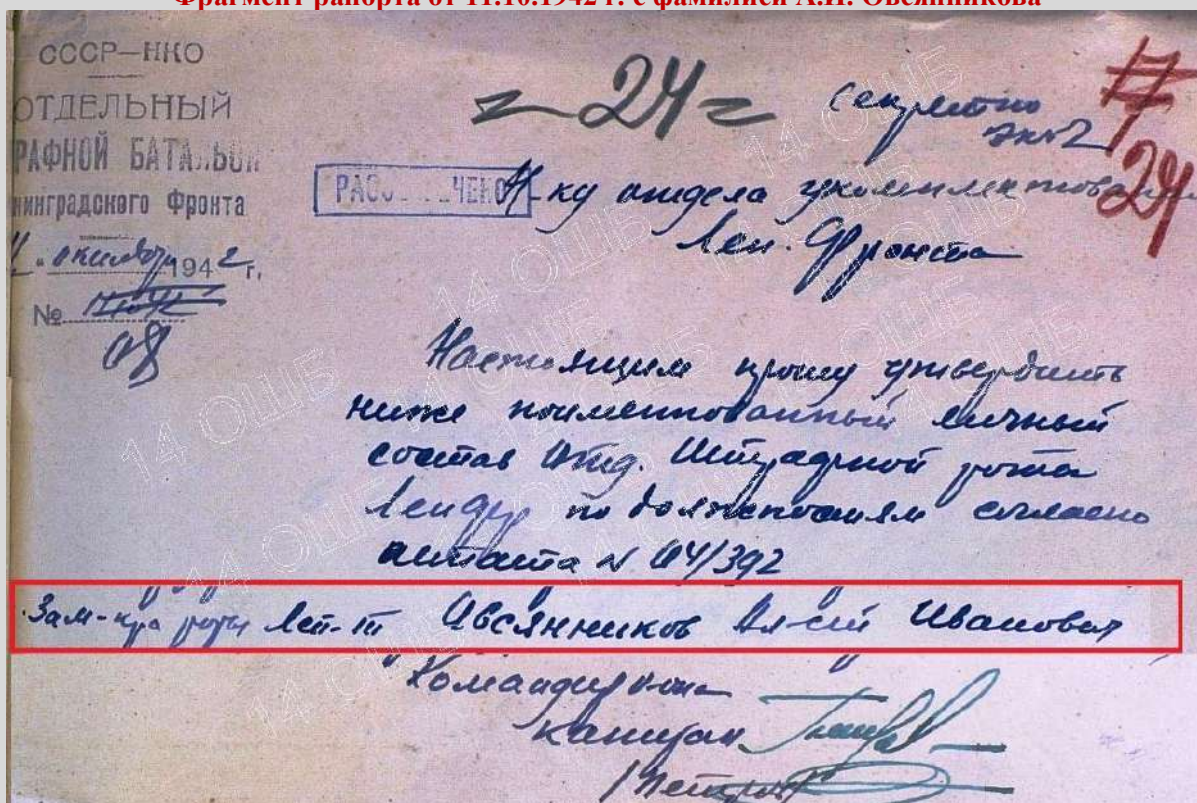 Фрагмент рапорта от 11.10.1942 г. с фамилией А.И. Овсянникова
СССР—НКО
ОТДЕЛЬНЫЙ
РАФНОЙ БАТАЛЬОН
нинградского Фронта
11 " октября 1942 г.
№
08
- 24 -
Секретно
экз 2
7
24
РАСС ЧЕНО
Н-ку отдела укомплектования
Лен. Фронта
Настоящим прошу утвердить
ниже поименованный личный
состав Отд. Штрафной роты
по должностям согласно
штата N 04/392
Зам-кра роты Лей-т Овсянников Ал-сей Иванович
Командир
капитан
/Петров/
14 ОШБ